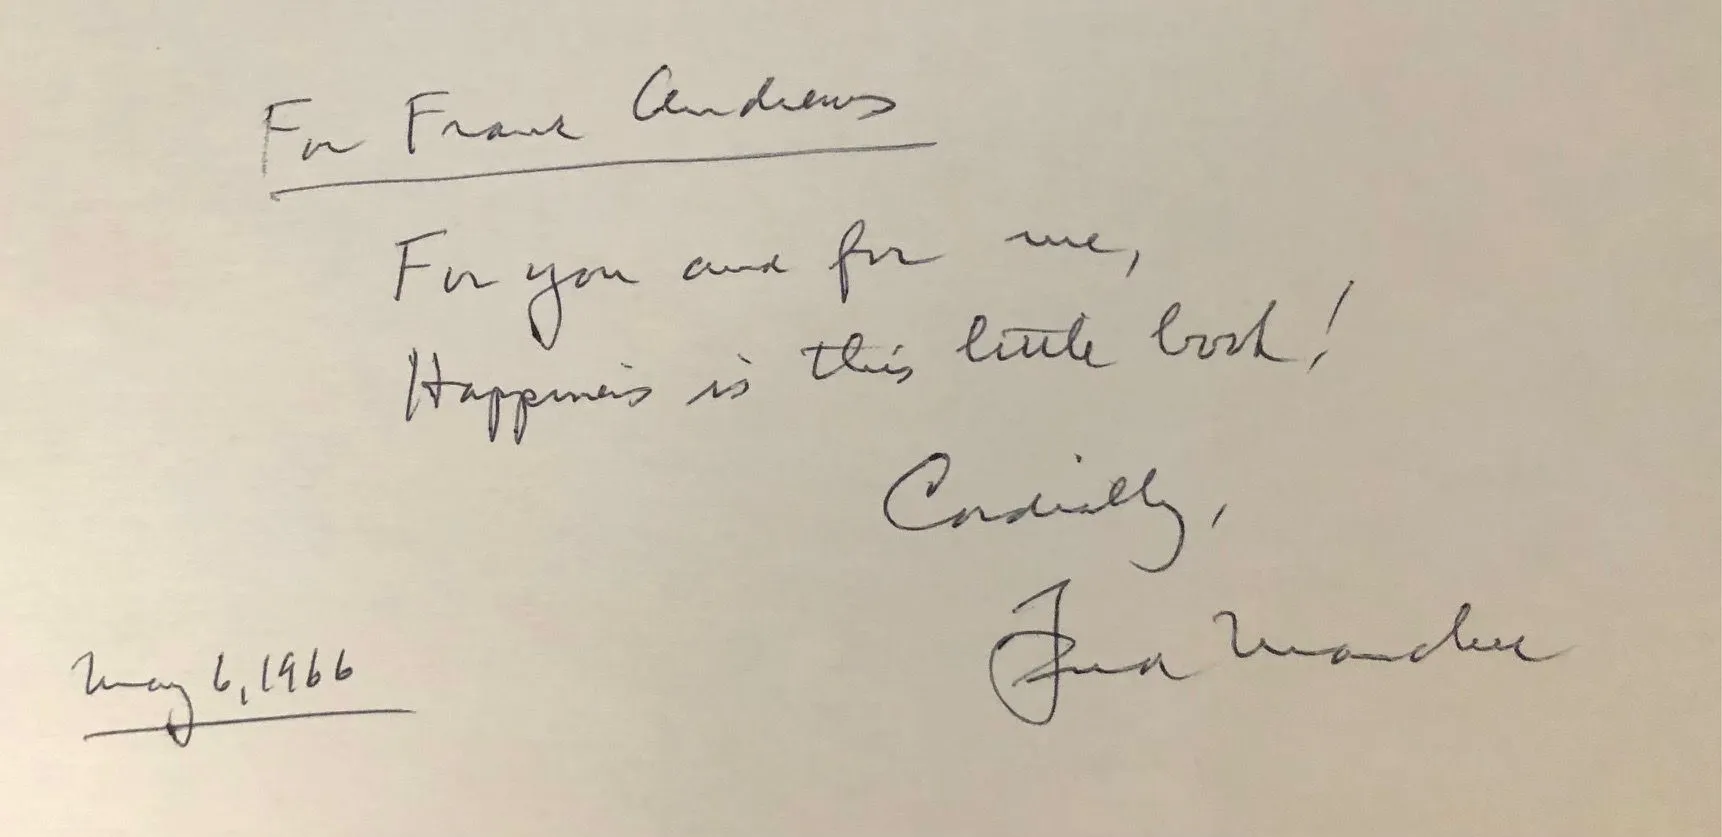 For Frank Andrews
For you and for me,
Happiness is this little book!
Cordially,
Fred
May 6, 1966